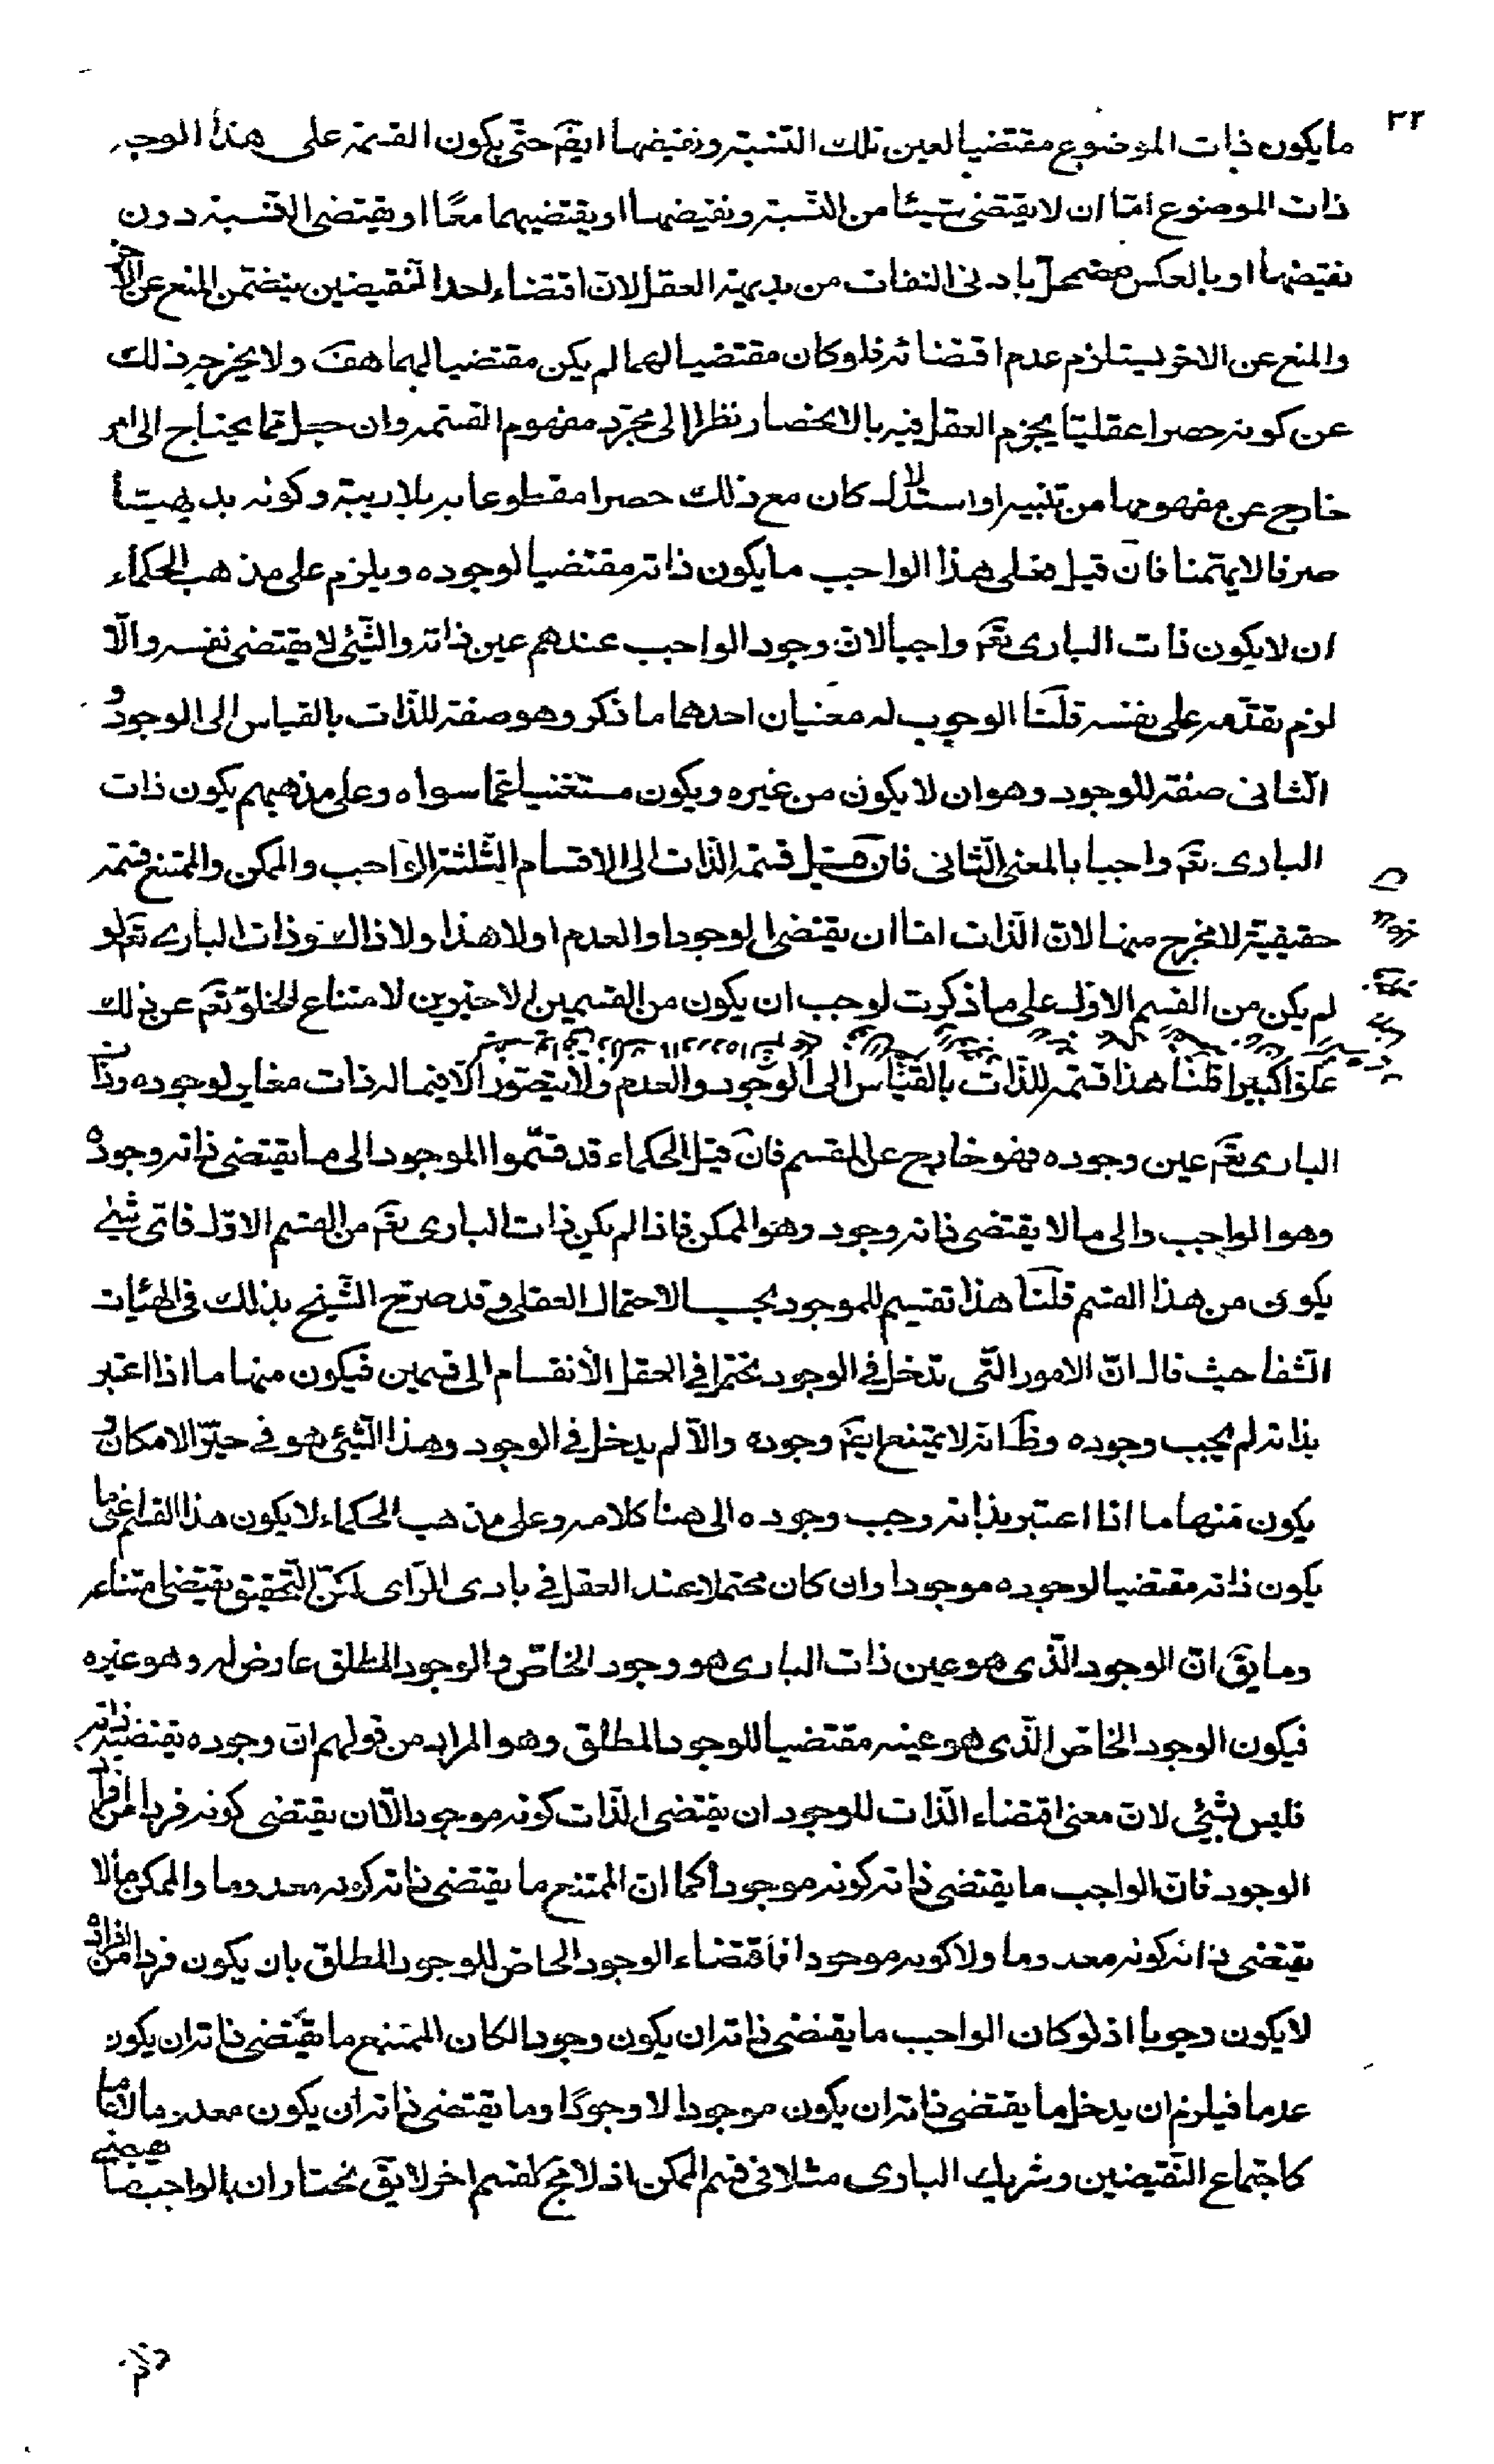 ٣٢
ما يكون ذات الموضوع مقتضيا لعين تلك النسبة ونقيضها ايضَ حتى يكون القسمة على هذا الوجه
ذات الموضوع امّا ان لا يقتضى شيئا من النسبة ونقيضها او يقتضيهما معًا او يقتضى النسبة دون
نقيضها او بالعكس مضمحلّ بادنى التفات من بديهة العقل لانّ اقتضاء احد النقيضين يتضمن المنع عن الاخر
والمنع عن الاخر يستلزم عدم اقتضائه فلو كان مقتضيا لهما لم يكن مقتضيا لهما هف ولا يخرجه ذلك
عن كونه حصرا عقليّا يجزم العقل فيه بالانحصار نظرا الى مجرّد مفهوم القسمة وان جعل ممّا يحتاج الى امر
خارج عن مفهومها من تنبيه او استدلال كان مع ذلك حصرا مقطوعا به بلا ريبة وكونه بديهيّا
صرفا لا يهمّنا فان قيل فعلى هذا الواجب ما يكون ذاته مقتضيا لوجوده ويلزم على مذهب الحكماء
ان لا يكون ذات البارى تعَ واجبا لانّ وجود الواجب عندهم عين ذاته والشّئ لا يقتضى نفسه والّا
لزم تقدّمه على نفسه قلنا الوجوب له معنيان احدهما ما ذكر وهو صفة للذّات بالقياس الى الوجود و
الثانى صفة للوجود وهو ان لا يكون من غيره ويكون مستغنيا عمّا سواه وعلى مذهبهم يكون ذات
البارى تعَ واجبا بالمعنى الثّانى فان قيل قسمة الذّات الى الاقسام الثّلثة الواجب والممكن والممتنع قسمة
حقيقية لا مخرج منها لانّ الذّات امّا ان يقتضى الوجود او العدم او لا هذا ولا ذاك وذات البارى تعَ لو
لم يكن من القسم الاوّل على ما ذكرت لوجب ان يكون من القسمين الاخيرين لامتناع الخلوّ تعَ عن ذلك
علوّا كبيرا قلنا هذا قسمة للذّات بالقياس الى الوجود والعدم ولا يتصوّر الّا فيما له ذات مغاير لوجوده وذات
البارى تعَ عين وجوده فهو خارج عن المقسم فان قيل الحكماء قد قسّموا الموجود الى ما يقتضى ذاته وجوده
وهو الواجب والى ما لا يقتضى ذاته وجوده وهو الممكن فاذا لم يكن ذات البارى تعَ من القسم الاوّل فاىّ شئ
يكون من هذا القسم قلنا هذا تقسيم للموجود بحسب الاحتمال العقلى وقد صرّح الشّيخ بذلك فى الهيّات
الشفا حيث قال انّ الامور الّتى تدخل فى الوجود يحتمل فى العقل الانقسام الى قسمين فيكون منها ما اذا اعتبر
بذاته لم يجب وجوده وظَ انّه لا يمتنع ايضَ وجوده والّا لم يدخل فى الوجود وهذا الشّئ هو فى حيّز الامكان و
يكون منها ما اذا اعتبر بذاته وجب وجوده الى هنا كلامه وعلى مذهب الحكماء لا يكون هذا القسم اعنى ما
يكون ذاته مقتضيا لوجوده موجودا وان كان محتملا عند العقل فى بادى الرّاى لكنّ التّحقيق يقتضى امتناعه
وما يقَ انّ الوجود الّذى هو عين ذات البارى هو وجود الخاصّ والوجود المطلق عارض له وهو غيره
فيكون الوجود الخاصّ الّذى هو عينه مقتضيا للوجود المطلق وهو المراد من قولهم انّ وجوده يقتضيه ذاته
فليس بشئ لانّ معنى اقتضاء الذّات للوجود ان يقتضى الذّات كونه موجودا لا ان يقتضى كونه فردا من افراد
الوجود فانّ الواجب ما يقتضى ذاته كونه موجودا كما انّ الممتنع ما يقتضى ذاته كونه معدوما والممكن ما لا
يقتضى ذاته كونه معدوما ولا كونه موجودا فاقتضاء الوجود الخاصّ للوجود المطلق بان يكون فردا من افراده
لا يكون وجوبا اذ لو كان الواجب ما يقتضى ذاته ان يكون وجودا لكان الممتنع ما يقتضى ذاته ان يكون
عدما فيلزم ان يدخل ما يقتضى ذاته ان يكون موجودا لا وجودًا وما يقتضى ذاته ان يكون معدوما لا عدما
كاجتماع النّقيضين وشريك البارى مثلا فى قسم الممكن اذ لا مجَ لقسم اخر لا يقَ نختار ان الواجب ما يقتضى